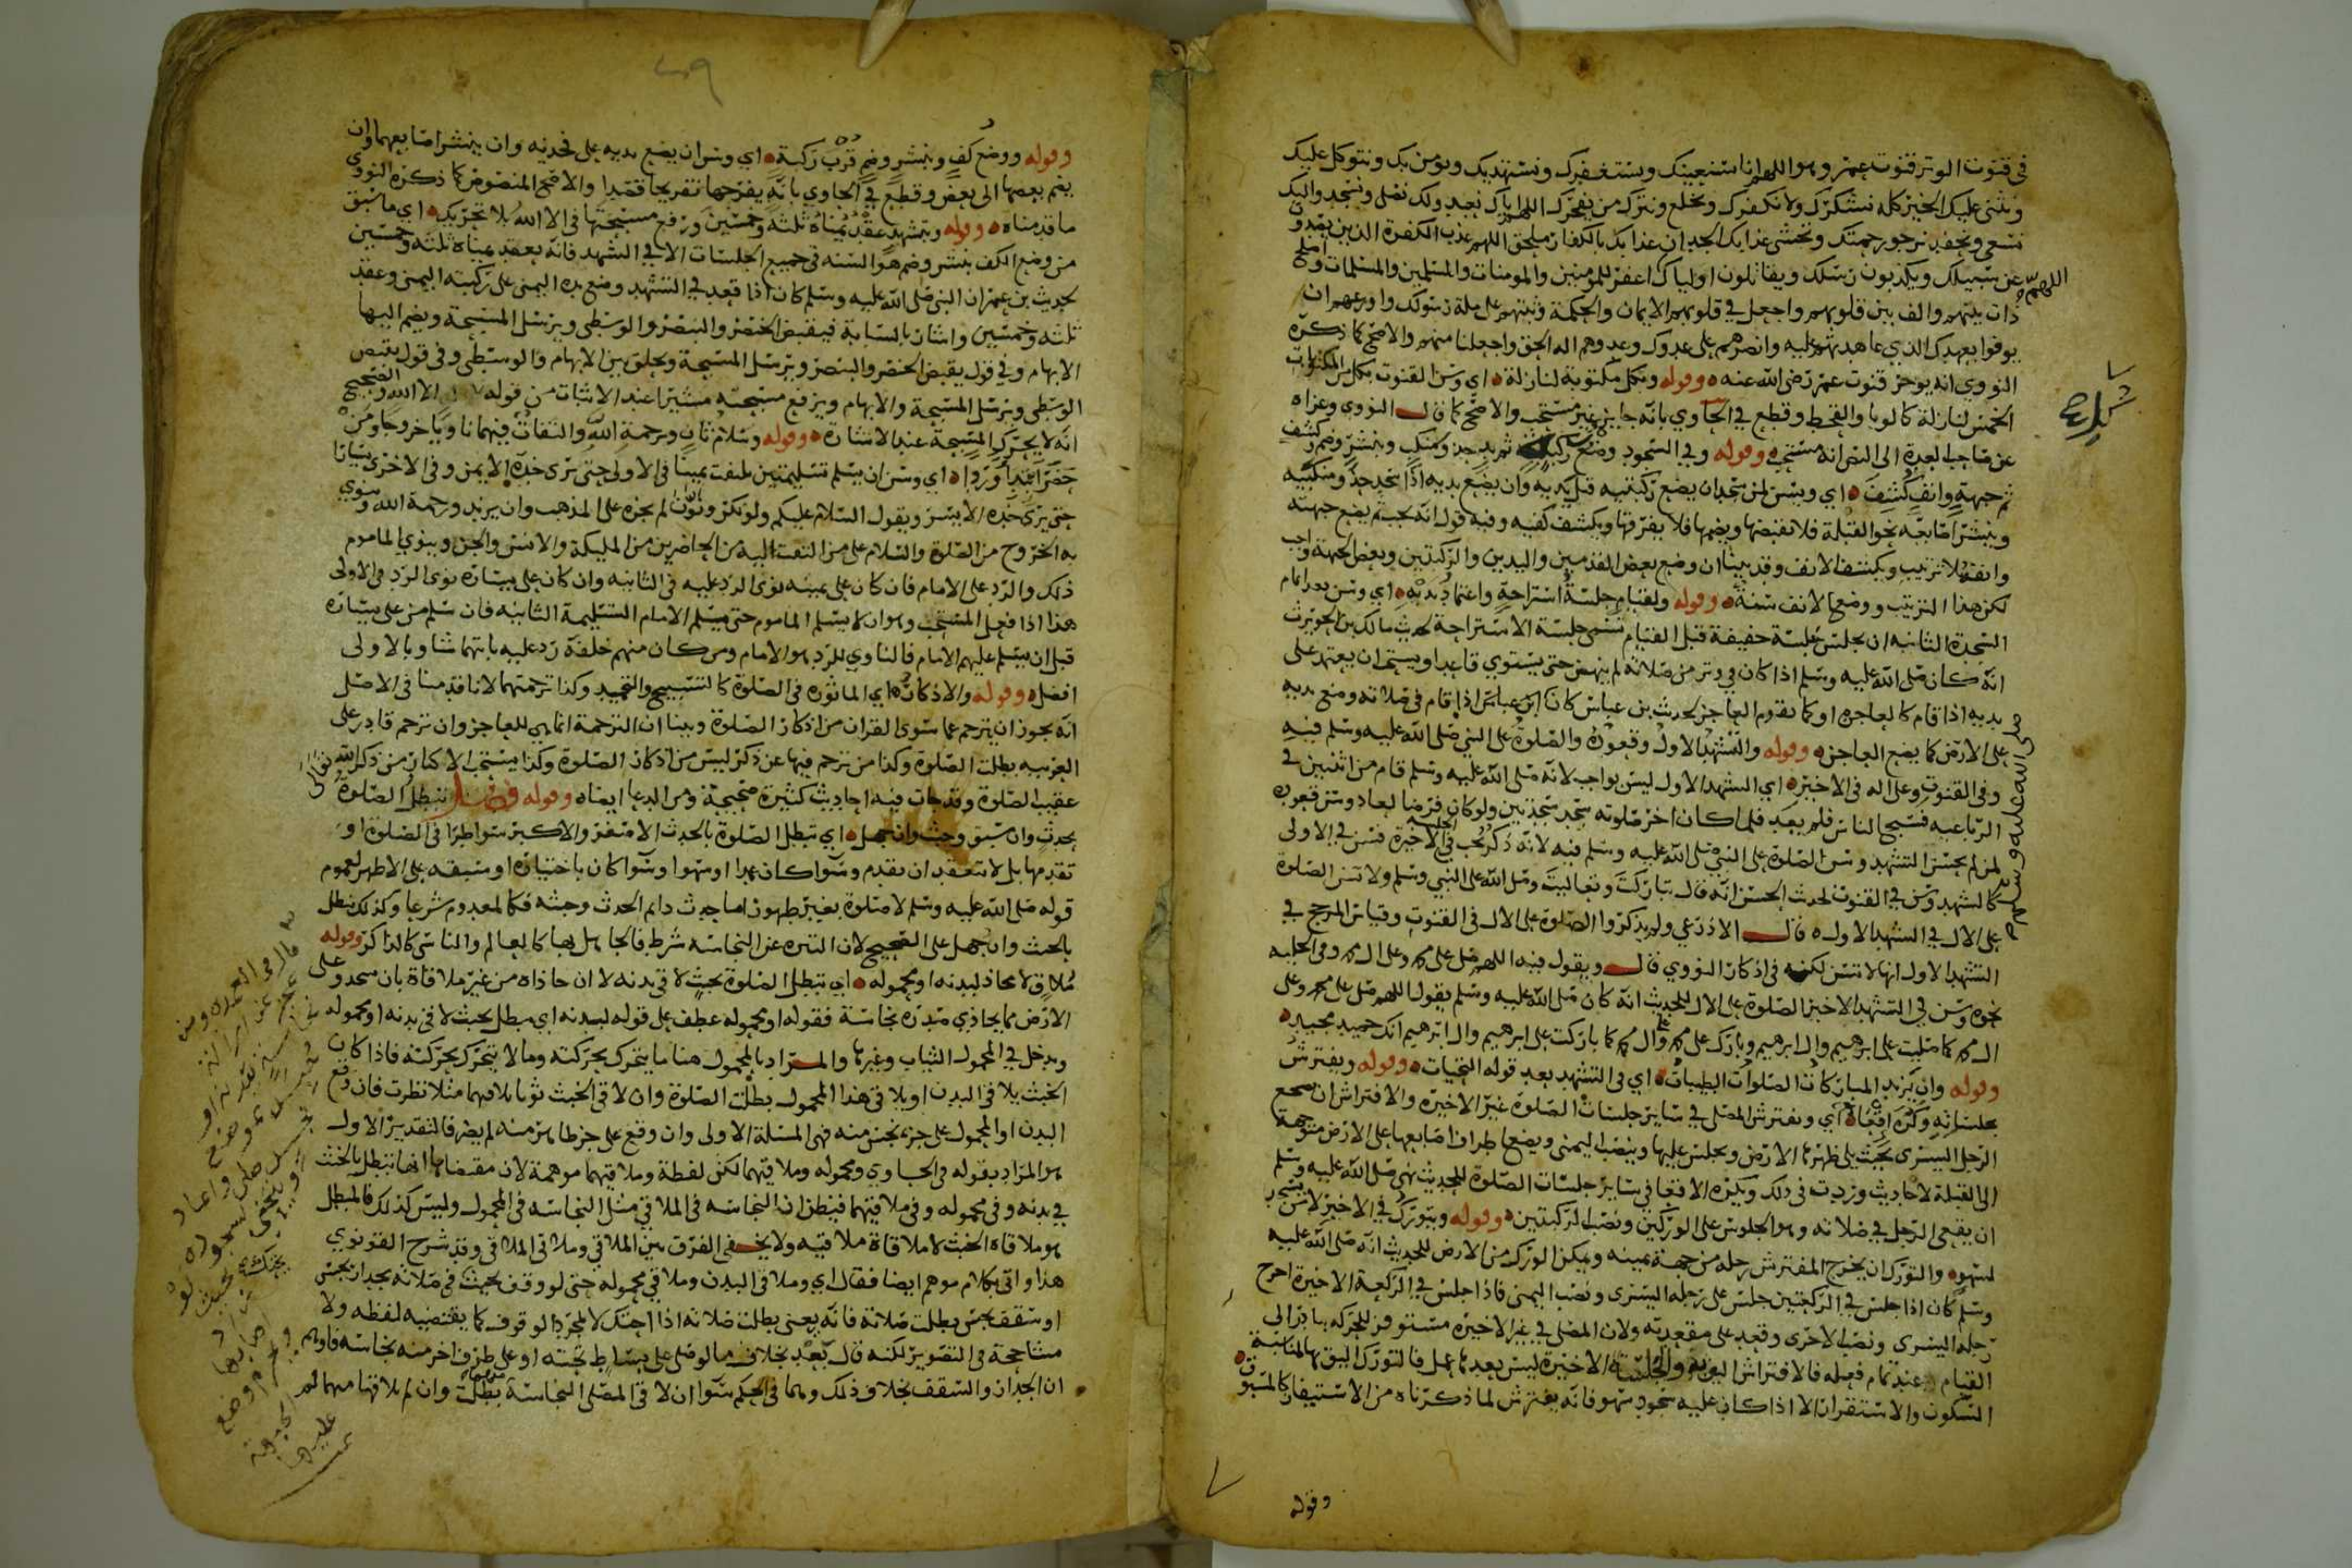 في قنوت الوتر قنوت عمر وهو اللهم انا نستعينك ونستغفرك ونستهديك ونومن بك ونتوكل عليك
ونثني عليك الخير كله نشكرك ولا نكفرك ونخلع ونترك من يفجرك اللهم اياك نعبد ولك نصلي ونسجد واليك
نسعى ونحفد نرجو رحمتك ونخشى عذابك الجد ان عذابك بالكفار ملحق اللهم عذب الكفرة الذين يصدون
عن سبيلك ويكذبون رسلك ويقاتلون اولياك اللهم اغفر للمومنين والمومنات والمسلمين والمسلمات واصلح
ذات بينهم والف بين قلوبهم واجعل في قلوبهم الايمان والحكمة وثبتهم على ملة رسولك واوزعهم ان
يوفوا بعهدك الذي عاهدتهم عليه وانصرهم على عدوك وعدوهم اله الحق واجعلنا منهم والاصح كما ذكره
النووي انه يوخر قنوت عمر رضي الله عنه وقوله وبكل مكتوبة لنازلة اي وسن القنوت بكل من المكتوبات
الخمس لنازلة كالوبا والقحط وقطع في الحاوي بانه جايز غير مستحب والاصح كما قال النووي وعزاه
عن صاحب العدة الى النص انه مستحب وقوله وفي السجود وضع ركبتيه ثم يد حذو منكب وبنشر وضم وكشف
ثم جبهة وانف كشف اي ويسن لمن سجد ان يضع ركبتيه قبل يديه وان يضع يديه اذا سجد حذو منكبيه
وينشر اصابعه نحو القبلة فلا يقبضها ويضمها فلا يفرقها ويكشف كفيه وفيه قول انه يجب ثم يضع جبهته
وانفه بلا ترتيب ويكشف الانف وقد بينا ان وضع بعض القدمين واليدين والركبتين وبعض الجبهة واجب
لكن هذا الترتيب ووضع الانف سنة وقوله ولقيام جلسة استراحة واعتماد بيديه اي وسن بعد اتمام
السجدة الثانيه ان يجلس جلسة خفيفة قبل القيام تسمى جلسة الاستراحة لحديث مالك بن الحويرث
انه كان صلى الله عليه وسلم اذا كان في وتر من صلاته لم ينهض حتى يستوي قاعدا ويستحب ان يعتمد على
يديه اذا قام كالعاجز او كما يقوم العاجز لحديث بن عباس كان اذا قام في صلاته وضع يديه
على الارض كما يضع العاجز وقوله والتشهد الاول وقعوده والصلوة على النبي صلى الله عليه وسلم فيه
وفي القنوت وعلى اله في الاخير اي التشهد الاول ليس بواجب لانه صلى الله عليه وسلم قام من اثنتين في
الرباعيه فسبح الناس فلم يعد فلما كان اخر صلوته سجد سجدتين ولو كان فرضا لعاد وسن قعوده
لمن لم يحسن التشهد وسن الصلوة على النبي صلى الله عليه وسلم فيه لانه ذكر يجب في الجلسة الاخيرة فسن في الاولى
كالتشهد وسن في القنوت لحديث الحسن انه قال تباركت وتعاليت وصلى الله على النبي وسلم ولا تسن الصلوة
على الال في التشهد الاول قال الاذرعي ولم يذكروا الصلوة على الال في القنوت وقياس المرجح في
التشهد الاول انها لا تسن لكنه في اذكار النووي قال ويقول فيه اللهم صل على محمد وعلى ال محمد وفي الحلية
نحوه وسن في التشهد الاخير الصلوة على الال للحديث انه كان صلى الله عليه وسلم يقول اللهم صل على محمد وعلى
ال محمد كما صليت على ابرهيم وال ابرهيم وبارك على محمد وعلى ال محمد كما باركت على ابرهيم وال ابرهيم انك حميد مجيد
وقوله وان يزيد المباركات الصلوات الطيبات اي في التشهد بعد قوله التحيات وقوله ويفترش
بجلساته وكره اقعا اي ويفترش المصلي في ساير جلسات الصلوة غير الاخيره والافتراش ان يضجع
الرجل اليسرى بحيث يلي ظهرها الارض ويجلس عليها وينصب اليمنى ويضع اطراف اصابعها على الارض متوجهة
الى القبلة لاحاديث وردت في ذلك ويكره الاقعا في ساير جلسات الصلوة للحديث نهى صلى الله عليه وسلم
ان يقعي الرجل في صلاته وهو الجلوس على الوركين ونصب الركبتين وقوله ويتورك في الاخير لا من يسجد
لسهو والتورك ان يخرج المفترش رجله من جهة يمينه ويمكن الورك من الارض للحديث انه صلى الله عليه
وسلم كان اذا جلس في الركعتين جلس على رجله اليسرى ونصب اليمنى فاذا جلس في الركعة الاخيرة اخرج
رجله اليسرى ونصب الاخرى وقعد على مقعدته ولان المصلي في غير الاخيره مستوفز للحركه يبادر الى
القيام عند تمام فعله فالافتراش اليق به والجلسة الاخيرة ليس بعدها عمل فالتورك اليق بها لمناسبة
السكون والاستقرار الا اذا كان عليه سجود سهو فانه يفترش لما ذكرناه من الاستيفاز كالمسبوق
اللهم
صلى الله عليه وسلم
وقوله
وقوله ووضع كف وبنشر وضم قرب ركبة اي وسن ان يضع يديه على فخذيه وان ينشر اصابعهما وان
يضم بعضها الى بعض وقطع في الحاوي بانه يفرجها تفريجا قصدا والاصح المنصوص كما ذكره النووي
ما قدمناه وقوله وبتشهد عقد يمناه ثلثة وخمسين ورفع مسبحتها في الا الله بلا تحريك اي ما سبق
من وضع الكف بنشر وضم هو السنه في جميع الجلسات الا في التشهد فانه يعقد يمناه ثلثه وخمسين
لحديث بن عمر ان النبي صلى الله عليه وسلم كان اذا قعد في التشهد وضع يده اليمنى على ركبته اليمنى وعقد
ثلثه وخمسين واشار بالسبابة فيقبض الخنصر والبنصر والوسطى ويرسل المسبحة ويضم اليها
الابهام وفي قول يقبض الخنصر والبنصر ويرسل المسبحة ويحلق بين الابهام والوسطى وفي قول يقبض
الوسطى ويرسل المسبحة والابهام ويرفع مسبحته مشيرا عند الاثبات من قوله الا الله والصحيح
انه لا يحرك المسبحة عند الاشارة وقوله وسلام ثان ورحمة الله والتفات فيهما ناويا خروجا ومن
حضر اعتمد ورد اي وسن ان يسلم تسليمتين يلتفت يمينا في الاولى حتى يرى خده الايمن وفي الاخرى يسارا
حتى يرى خده الايسر ويقول السلام عليكم ولو نكر ونون لم يجزه على المذهب وان يزيد ورحمة الله وينوي
به الخروج من الصلوة والسلام على من التفت اليه من الحاضرين من المليكة والانس والجن وينوي الماموم
ذلك والرد على الامام فان كان على يمينه نوى الرد عليه في الثانيه وان كان على يساره نوى الرد في الاولى
هذا اذا فعل المستحب وهو ان لا يسلم الماموم حتى يسلم الامام التسليمة الثانيه فان سلم من على يساره
قبل ان يسلم عليهم الامام فالناوي للرد هو الامام ومن كان منهم خلفه رد عليه بايتهما شا وبالاولى
افضل وقوله والاذكار اي الماثوره في الصلوة كالتسبيح والتحميد وكذا ترجمتها لانا قدمنا في الاصل
انه يجوز ان يترجم عما سوى القران من اذكار الصلوة وبينا ان الترجمة انما هي للعاجز وان ترجم قادر على
العربيه بطلت الصلوة وكذا من ترجم فيها عن ذكر ليس من اذكار الصلوة وكذا يستحب الاكثار من ذكر الله تعالى
عقيب الصلوة وقد جات فيه احاديث كثيرة صحيحة ومن الدعا ايضا وقوله فصل تبطل الصلوة
بحدث وان سبق وخبث وان جهل اي تبطل الصلوة بالحدث الاصغر والاكبر سوا طرا في الصلوة او
تقدمها بل لا تنعقد ان تقدم وسوا كان عمدا او سهوا وسوا كان باختياره او سبقه على الاظهر لعموم
قوله صلى الله عليه وسلم لا صلوة بغير طهور اما حدث دايم الحدث وخبثه فكالمعدوم شرعا وكذلك تبطل
بالخبث وان جهل على الصحيح لان التنزه عن النجاسه شرط فالجاهل بها كالعالم والناسي كالذاكر وقوله
ملاق لا محاذ لبدنه او محموله اي تبطل الصلوة بخبث لاقى بدنه لا ان حاذاه من غير ملاقاة بان سجد وعلى
الارض مما يحاذي صدره نجاسة فقوله او محموله عطف على قوله لبدنه اي مبطل بخبث لاقى بدنه او محموله
ويدخل في المحمول الثياب وغيرها والمراد بالمحمول هنا ما يتحرك بحركته وما لا يتحرك بحركته فاذا كان
الخبث يلاقي البدن او يلاقي هذا المحمول بطلت الصلوة وان لاقى الخبث ثوبا يلاقيهما مثلا نظرت فان وقع
البدن او المحمول على جزء نجس منه فهي المسئلة الاولى وان وقع على جزء طاهر منه لم يضر فالتقدير الاول
هو المراد بقوله في الحاوي ومحموله وملاقيهما لكن لفظة وملاقيهما موهمة لان مقتضاها انها تبطل بالخبث
في بدنه وفي محموله وفي ملاقيهما فيظن ان النجاسه في الملاقي مثل النجاسه في المحمول وليس كذلك فالمبطل
هو ملاقاة الخبث لا ملاقاة ملاقيه ولا يخفى الفرق بين الملاقي وملاقي الملاقي وقد شرح القونوي
هذا واتى بكلام موهم ايضا فقال اي وملاقي البدن وملاقي محموله حتى لو وقف بحيث في صلاته بجدار نجس
او سقف نجس بطلت صلاته فانه يعني بطلت صلاته اذا احتك لا لمجرد الوقوف كما يقتضيه لفظه ولا
مشاححة في التصوير لكنه قال بعد بخلاف ما لو صلى على بساط تحته او على طرف اخر منه نجاسه فاوهم
ان الجدار والسقف بخلاف ذلك وهما في الحكم سوا ان لاقى المصلي النجاسة بطلت وان لم يلاقها منهما لم